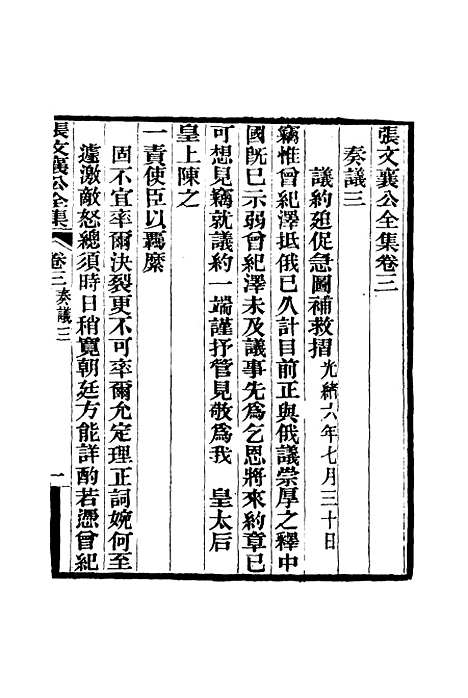 張文襄公全集卷三
奏議三
議約廹促急圖補救摺光緒六年七月三十日
竊惟曾紀澤抵俄已久計目前正與俄議崇厚之釋中
國旣巳示弱曾紀澤未及議事先為乞恩將來約章已
可想見竊就議約一端謹抒管見敬為我 皇太后
皇上陳之
一責使臣以羈縻
固不宜率爾決裂更不可率爾允定理正詞婉何至
遽激敵怒總須時日稍寬朝廷方能詳酌若憑曾紀
張文襄公全集 卷三 奏議三 一